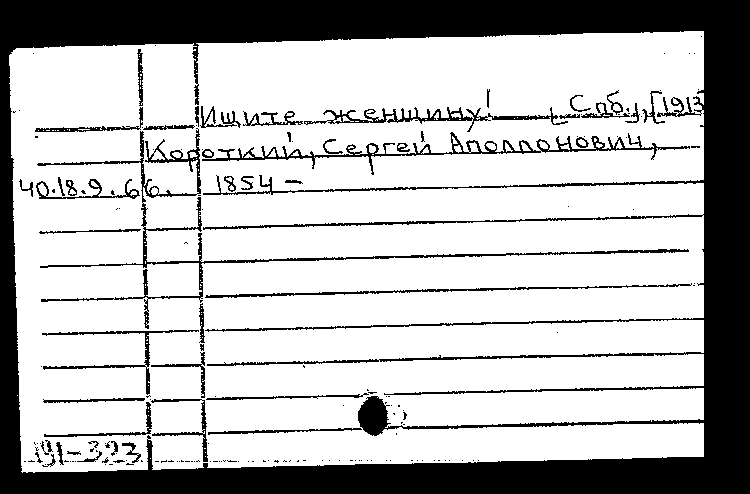 Ищите женщину! [Спб.,] [1913
Короткий, Сергей Аполлонович,
40.18.9.66. 1854 –
191-323